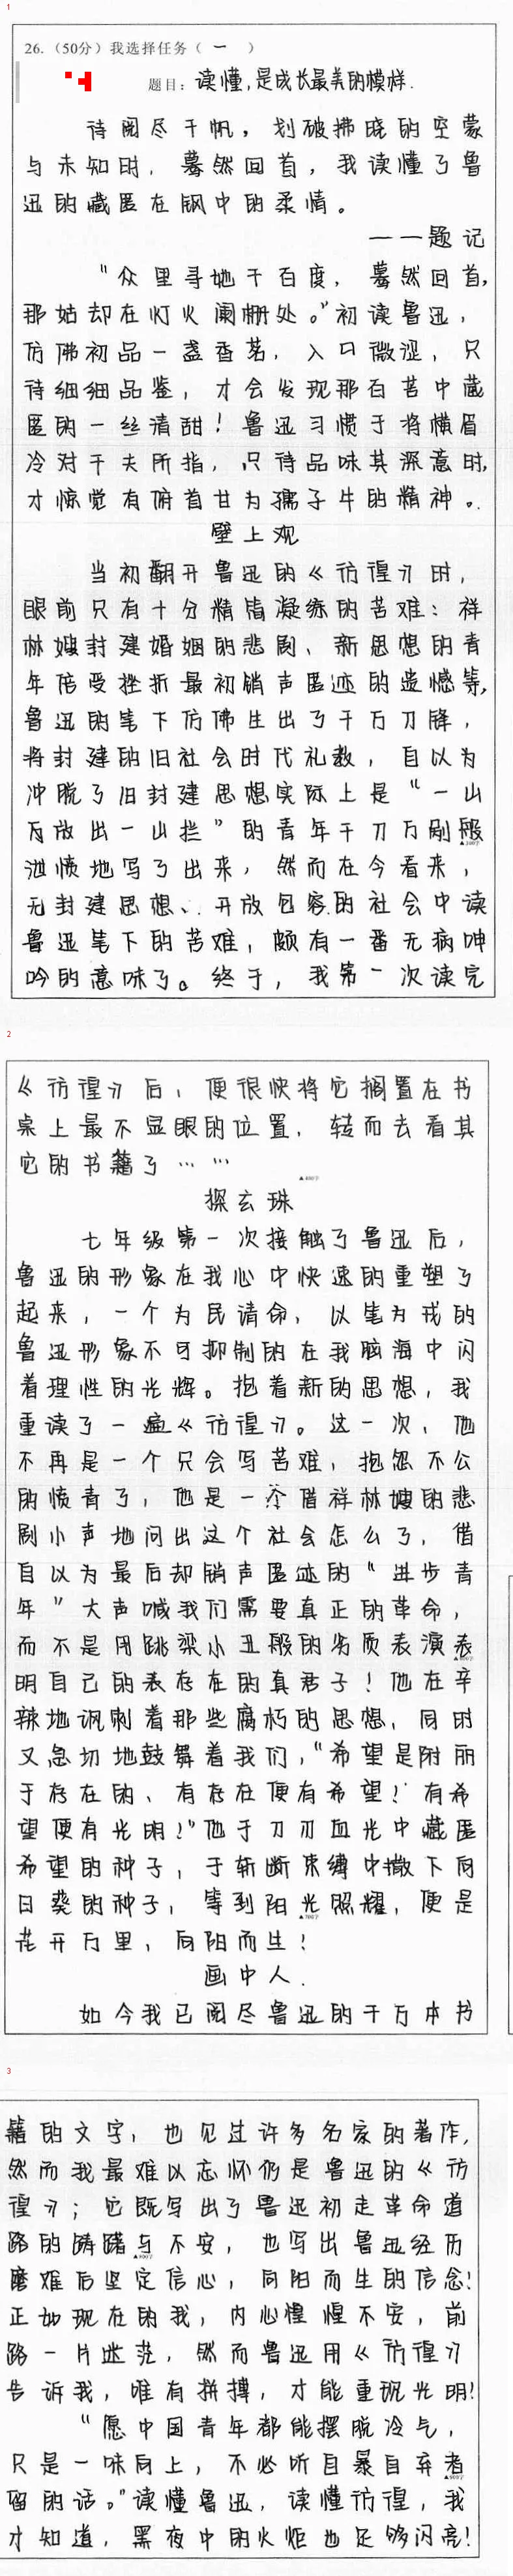 1
26. （50分）我选择任务（ 一 ）
题目：读懂，是成长最美的模样.
待阅尽千帆，划破拂晓的空蒙
与未知时，蓦然回首，我读懂了鲁
迅的藏匿在钢中的柔情。
——题记
"众里寻她千百度，蓦然回首，
那姑却在灯火阑栅处。"初读鲁迅，
仿佛初品一盏香茗，入口微涩，只
待细细品鉴，才会发现那百苦中藏
匿的一丝清甜！鲁迅习惯于将横眉
冷对千夫所指，只待品味其深意时，
才惊觉有俯首甘为孺子牛的精神。
壁上观
当初翻开鲁迅的《彷徨》时，
眼前只有十分精皆凝练的苦难：祥
林嫂封建婚姻的悲剧、新思想的青
年倍受挫折最初销声匿迹的遗憾等，
鲁迅的笔下仿佛生出了千万刀锋，
将封建的旧社会时代礼教，自以为
冲脱了旧封建思想实际上是"一山
万放出一山拦"的青年千刀万剐般
▲200字
泄愤地写了出来，然而在今看来，
无封建思想、开放包容的社会中读
鲁迅笔下的苦难，颇有一番无病呻
吟的意味了。终于，我第一次读完
2
《彷徨》后，便很快将它搁置在书
桌上最不显眼的位置，转而去看其
它的书籍了……
▲400字
探玄珠
七年级第一次接触了鲁迅后，
鲁迅的形象在我心中快速的重塑了
起来，一个为民请命，以笔为戎的
鲁迅形象不可抑制的在我脑海中闪
着理性的光辉。抱着新的思想，我
重读了一遍《彷徨》。这一次，他
不再是一个只会写苦难，抱怨不公
的愤青了，他是一个借祥林嫂的悲
剧小声地问出这个社会怎么了，借
自以为最后却销声匿迹的"进步青
年"大声喊我们需要真正的革命，
而不是用跳梁小丑般的劣质表演表
明自己的表存在的真君子！他在辛
辣地讽刺着那些腐朽的思想，同时
又急切地鼓舞着我们，"希望是附丽
于存在的、有存在便有希望！有希
望便有光明！"他于刀刃血光中藏匿
希望的种子，于斩断束缚中撒下向
日葵的种子，等到阳光照耀，便是
▲700字
花开万里，向阳而生！
画中人.
如今我已阅尽鲁迅的千万本书
3
籍的文字，也见过许多名家的著作，
然而我最难以忘怀仍是鲁迅的《彷
徨》；它既写出了鲁迅初走革命道
路的踌躇与不安，也写出鲁迅经历
磨难后坚定信心，向阳而生的信念！
正如现在的我，内心惶惶不安，前
路一片迷茫，然而鲁迅用《彷徨》
告诉我，唯有拼搏，才能重现光明！
"愿中国青年都能摆脱冷气，
只是一味向上，不必听自暴自弃者
▲900字
留的话。"读懂鲁迅，读懂彷徨，我
才知道，黑夜中的火炬也足够闪亮！